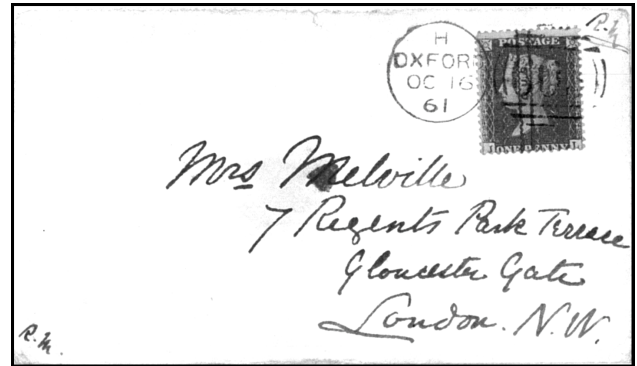 R.M.
H
OXFORD
OC 16
61
POSTAGE
ONE PENNY
Mrs Melville
7 Regents Park Terrace
Gloucester Gate
London. N.W.
R.M.